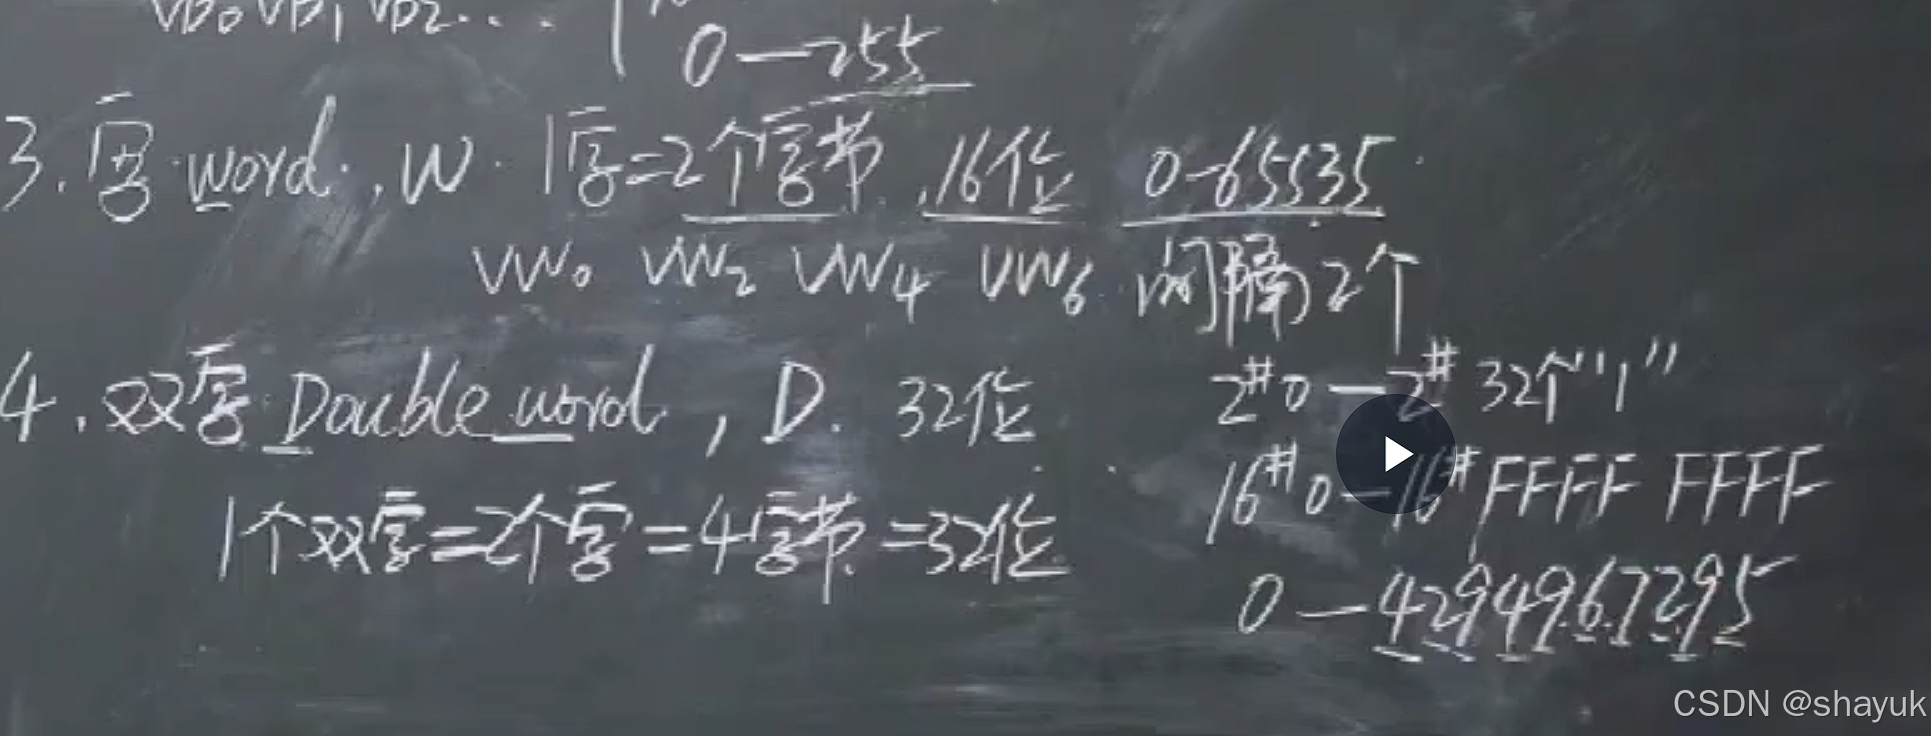 VB0 VB1 VB2...
0—255
3.字 word, W. 1字=2个字节, 16位 0-65535
VW0 VW2 VW4 VW6 间隔2个
4.双字 Double word, D. 32位
2#0—2# 32个"1"
16#0—16#FFFF FFFF
1个双字=2个字=4字节=32位
0—4294967295
CSDN @shayuk